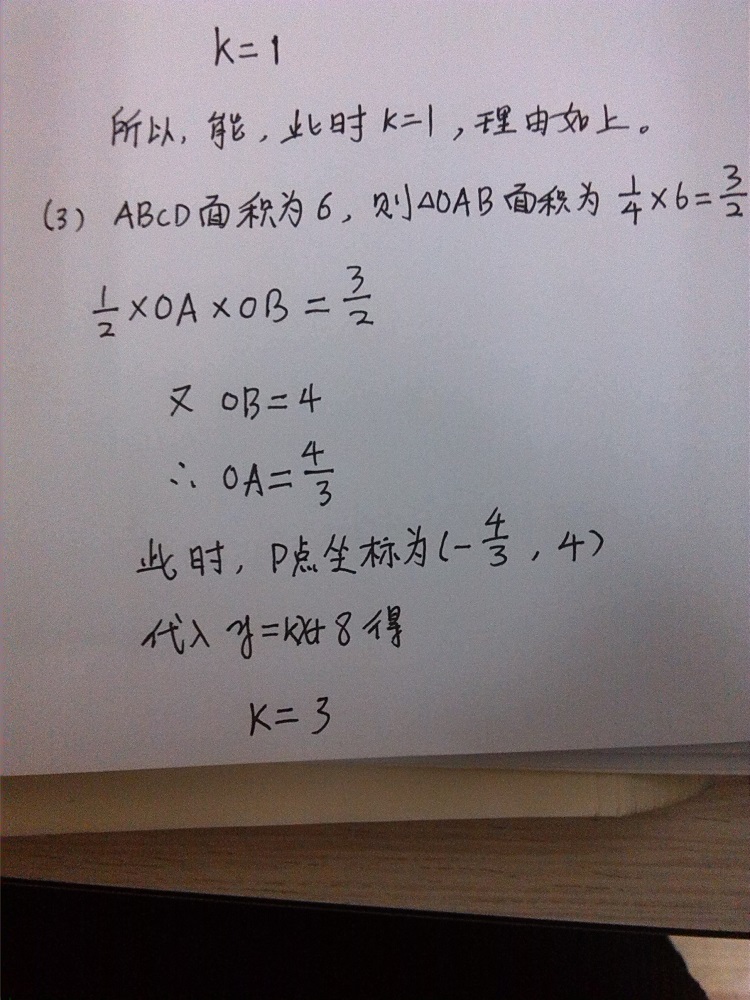 k=1
所以, 能, 此时 k=1, 理由如上。
(3) ABCD面积为6, 则△OAB面积为 1/4×6=3/2
1/2×OA×OB=3/2
又 OB=4
∴ OA=4/3
此时, P点坐标为(-4/3, 4)
代入 y=kx+8 得
k=3